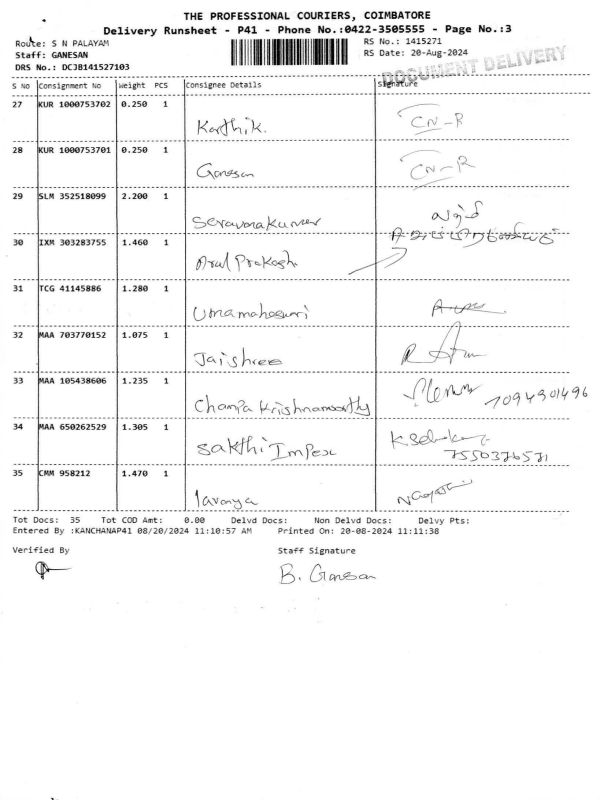 THE PROFESSIONAL COURIERS, COIMBATORE
Delivery Runsheet - P41 - Phone No.:0422-3505555 - Page No.:3
Route: S N PALAYAM
RS No.: 1415271
Staff: GANESAN
RS Date: 20-Aug-2024
DRS No.: DCJB141527103
DOCUMENT DELIVERY
S No Consignment No Weight PCS Consignee Details Signature
27 KUR 1000753702 0.250 1
Karthik. CN-R
28 KUR 1000753701 0.250 1
Ganesan CN-R
29 SLM 352518099 2.200 1
Saravanakumar
30 IXM 303283755 1.460 1
Arul Prakash
31 TCG 41145886 1.280 1
Umamaheswari
32 MAA 703770152 1.075 1
Jaishree
33 MAA 105438606 1.235 1
Champa Krishnamoorthy 7094901496
34 MAA 650262529 1.305 1
Sakthi Impex
7550376571
35 CMM 958212 1.470 1
lavanya
Tot Docs: 35 Tot COD Amt: 0.00 Delvd Docs: Non Delvd Docs: Delvy Pts:
Entered By :KANCHANAP41 08/20/2024 11:10:57 AM Printed On: 20-08-2024 11:11:38
Verified By Staff Signature
B. Ganesan